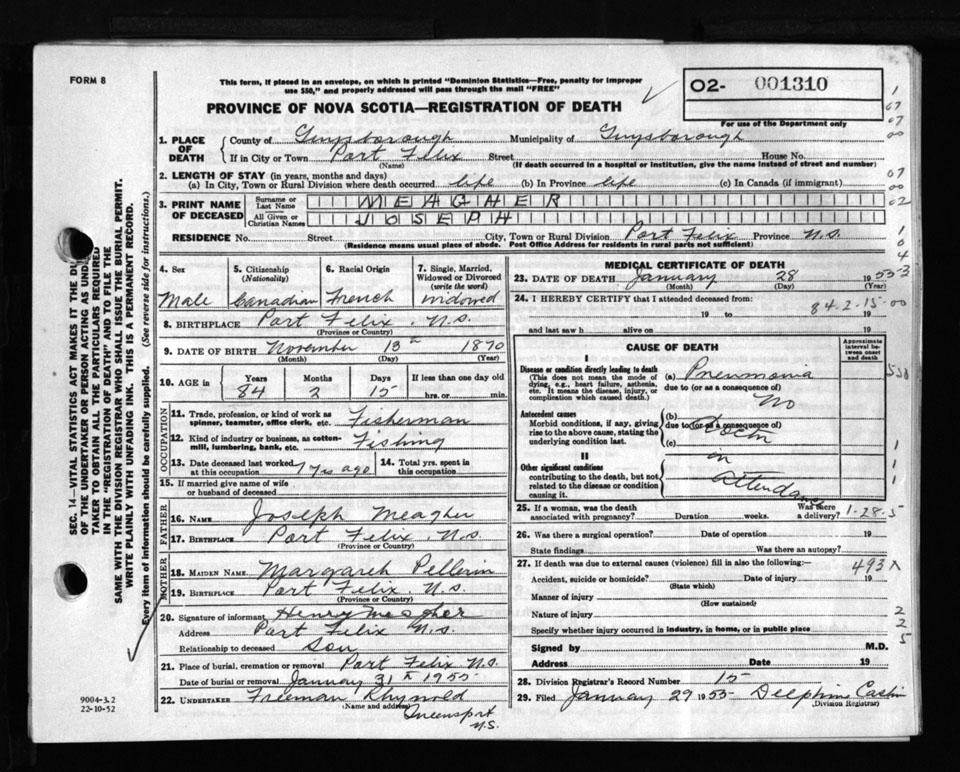 FORM 8
This form, if placed in an envelope, on which is printed "Dominion Statistics—Free, penalty for improper
use $50," and properly addressed will pass through the mail "FREE"
PROVINCE OF NOVA SCOTIA—REGISTRATION OF DEATH
O2- 001310
For use of the Department only
1. PLACE OF DEATH County of Guysborough Municipality of Guysborough
If in City or Town Port Felix Street House No.
(Name) (If death occurred in a hospital or institution, give the name instead of street and number)
2. LENGTH OF STAY (in years, months and days)
(a) In City, Town or Rural Division where death occurred life (b) In Province life (c) In Canada (if immigrant)
3. PRINT NAME OF DECEASED Surname or Last Name MEAGHER
All Given or Christian Names JOSEPH
RESIDENCE No. Street City, Town or Rural Division Port Felix Province N.S.
(Residence means usual place of abode. Post Office Address for residents in rural parts not sufficient)
4. Sex Male
5. Citizenship (Nationality) Canadian
6. Racial Origin French
7. Single, Married, Widowed or Divorced (write the word) widowed
8. BIRTHPLACE Port Felix. N.S.
(Province or Country)
9. DATE OF BIRTH November 13th 1870
(Month) (Day) (Year)
10. AGE in Years Months Days If less than one day old
84 2 15 hrs. or min.
OCCUPATION
11. Trade, profession, or kind of work as spinner, teamster, office clerk, etc. Fisherman
12. Kind of industry or business, as cotton-mill, lumbering, bank, etc. Fishing
13. Date deceased last worked at this occupation 17 yrs ago 14. Total yrs. spent in this occupation
15. If married give name of wife or husband of deceased
FATHER
16. NAME Joseph Meagher
17. BIRTHPLACE Port Felix. N.S.
(Province or Country)
MOTHER
18. MAIDEN NAME Margaret Pellerin
19. BIRTHPLACE Port Felix. N.S.
(Province or Country)
20. Signature of informant Henry Meagher
Address Port Felix N.S.
Relationship to deceased Son
21. Place of burial, cremation or removal Port Felix N.S.
Date of burial or removal January 31st 1955
22. UNDERTAKER Freeman Rhynold
(Name and address) Queensport
N.S.
MEDICAL CERTIFICATE OF DEATH
23. DATE OF DEATH January 28 1955
(Month) (Day)
24. I HEREBY CERTIFY that I attended deceased from:
84-2-15-00
19 to 19
and last saw h alive on 19
CAUSE OF DEATH
Approximate interval between onset and death
I
Disease or condition directly leading to death (a) Pneumonia
(This does not mean the mode of dying, e.g., heart failure, asthenia, etc. It means the disease, injury, or complication which caused death.) due to (or as a consequence of)
No
Antecedent causes (b)
Morbid conditions, if any, giving rise to the above cause, stating the underlying condition last. due to (or as a consequence of)
Doctor
(c)
in
II
Other significant conditions contributing to the death, but not related to the disease or condition causing it.
Attendance
25. If a woman, was the death associated with pregnancy? Duration weeks. Was there a delivery?
1-28-5
26. Was there a surgical operation? Date of operation 19
State findings Was there an autopsy?
27. If death was due to external causes (violence) fill in also the following:—
493X
Accident, suicide or homicide? Date of injury 19
(State which)
Manner of injury
(How sustained)
Nature of injury
Specify whether injury occurred in industry, in home, or in public place
Signed by M.D.
Address Date 19
28. Division Registrar's Record Number 15
29. Filed January 29 1955 Delphine Cashin
(Division Registrar)
SEC. 14—VITAL STATISTICS ACT MAKES IT THE DU
OF THE UNDERTAKER OR PERSON ACTING AS UND
TAKER TO OBTAIN ALL THE PARTICULARS REQUIRED
IN THE "REGISTRATION OF DEATH" AND TO FILE THE
SAME WITH THE DIVISION REGISTRAR WHO SHALL ISSUE THE BURIAL PERMIT.
WRITE PLAINLY WITH UNFADING INK. THIS IS A PERMANENT RECORD.
Every item of information should be carefully supplied. (See reverse side for instructions.)
9004-3.2
22-10-52